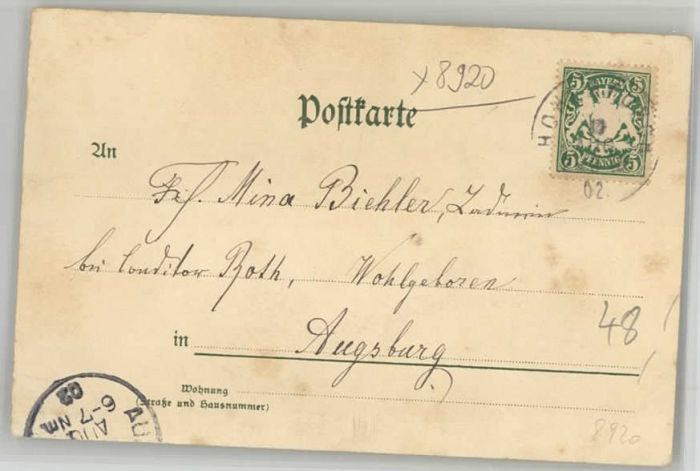 x8920
5 BAYERN 5
5 PFENNIG 5
HO
02.
Postkarte
An
Frl. Mina Biehler, Ladnerin
bei Conditor Roth, Wohlgeboren
48
in Augsburg
Wohnung
(Straße und Hausnummer)
AU
AUG
6-7 Nm
02
8920